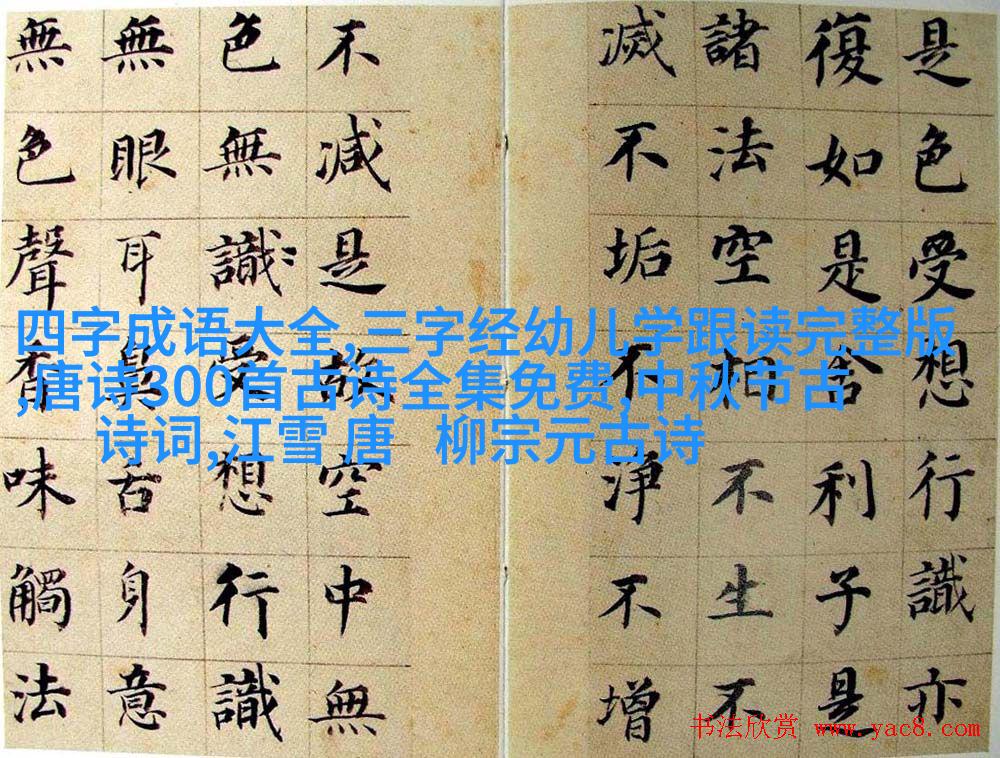 是色受想行識亦
復如是舍利子是
諸法空相不生不
滅不垢不淨不增
不減是故空中無
色無識受想行識
無眼耳鼻舌身意
無色聲香味觸法
四字成语大全,三字经幼儿学跟读完整版
,唐诗300首古诗全集免费,中秋节古
诗词,江雪 唐   柳宗元古诗
书法欣赏 www.yac8.com